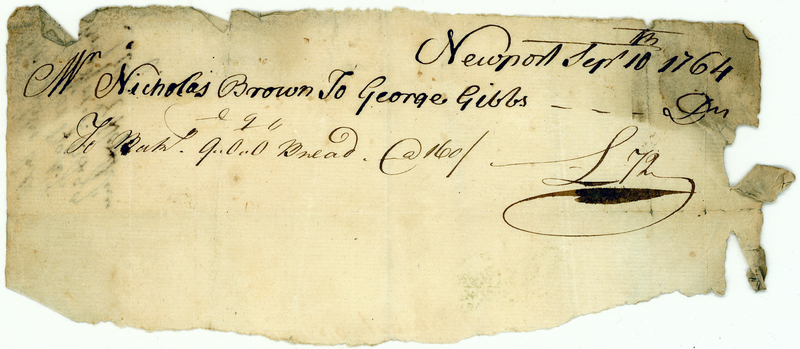 Newport Sepr 10th 1764
Mr Nicholas Brown To George Gibbs - - - Dr
To 9..0..0 Bread. @ 160/ — £ 72